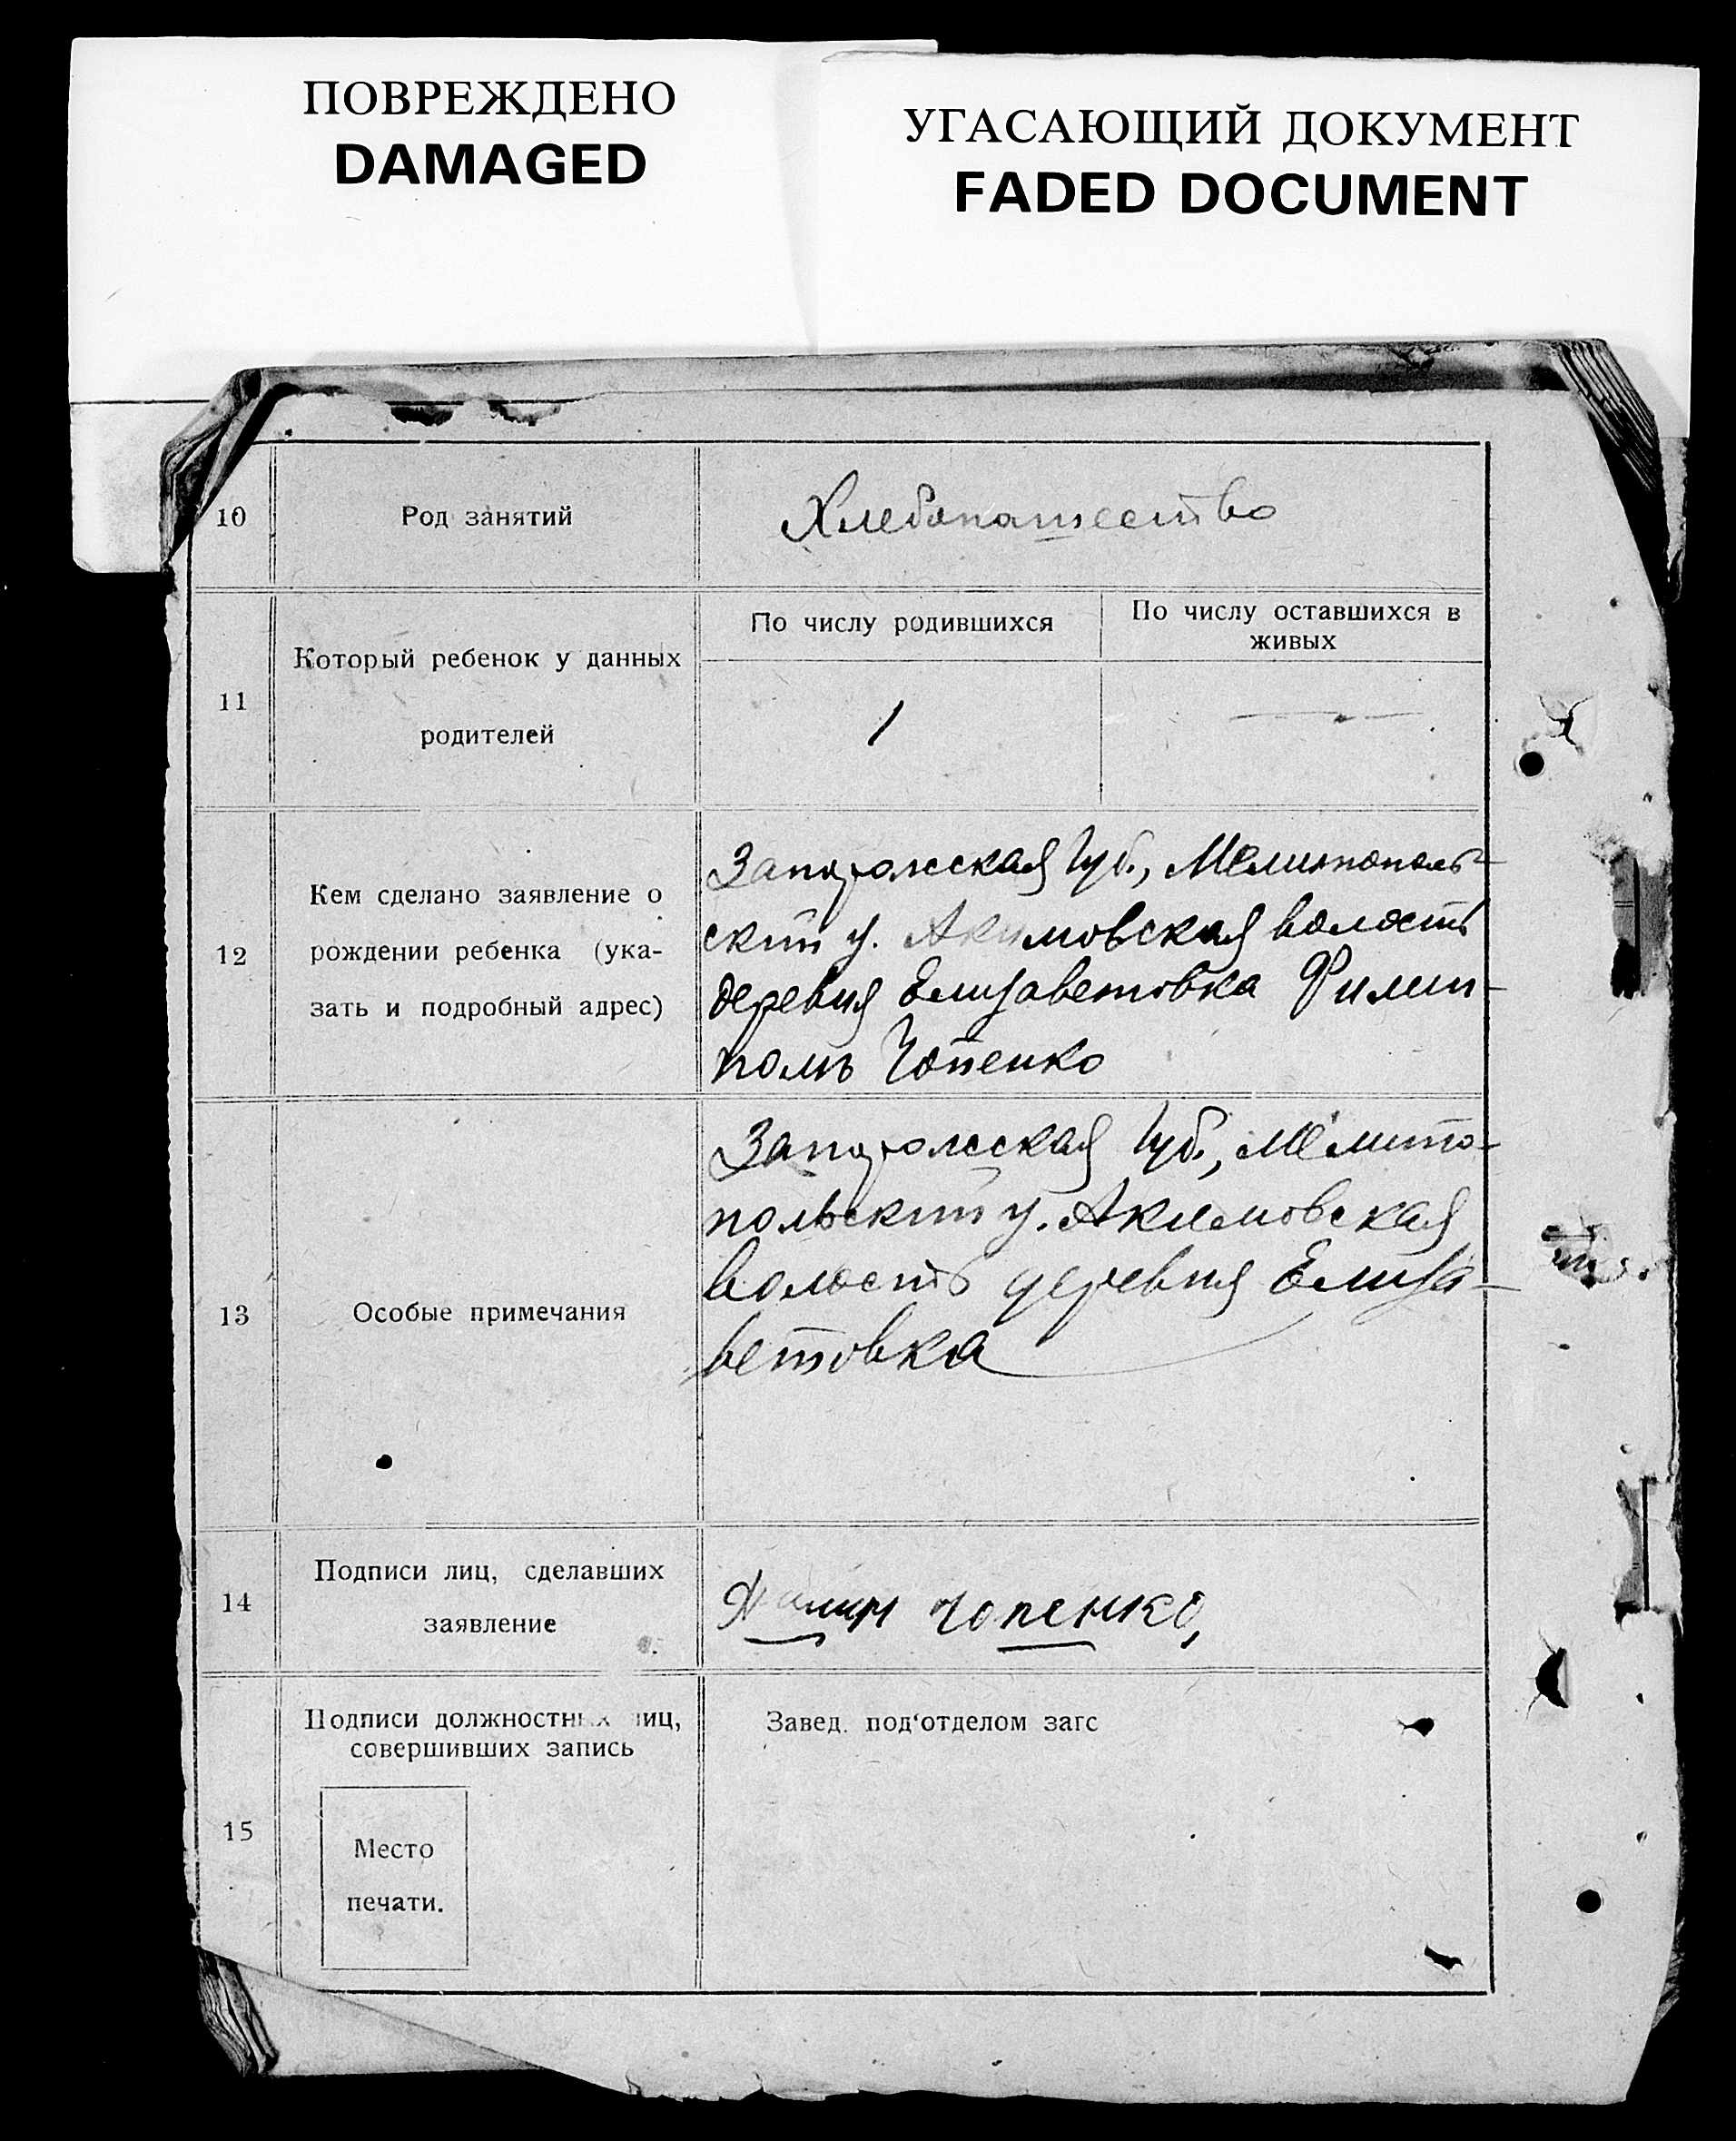 ПОВРЕЖДЕНО
DAMAGED
УГАСАЮЩИЙ ДОКУМЕНТ
FADED DOCUMENT
10
Род занятий
Хлебопашество
11
Который ребенок у данных
родителей
По числу родившихся
По числу оставшихся в
живых
1
—
12
Кем сделано заявление о
рождении ребенка (ука-
зать и подробный адрес)
Запорожская Губ., Мелитополь-
ский у. Акимовская волость
деревня Елизаветовка Филип-
помъ Чопенко
13
Особые примечания
Запорожская Губ., Мелито-
польский у. Акимовская
волость деревня Елиза-
ветовка
14
Подписи лиц, сделавших
заявление
Филип Чопенко,
15
Подписи должностных лиц,
совершивших запись
Место
печати.
Завед. под‘отделом загс